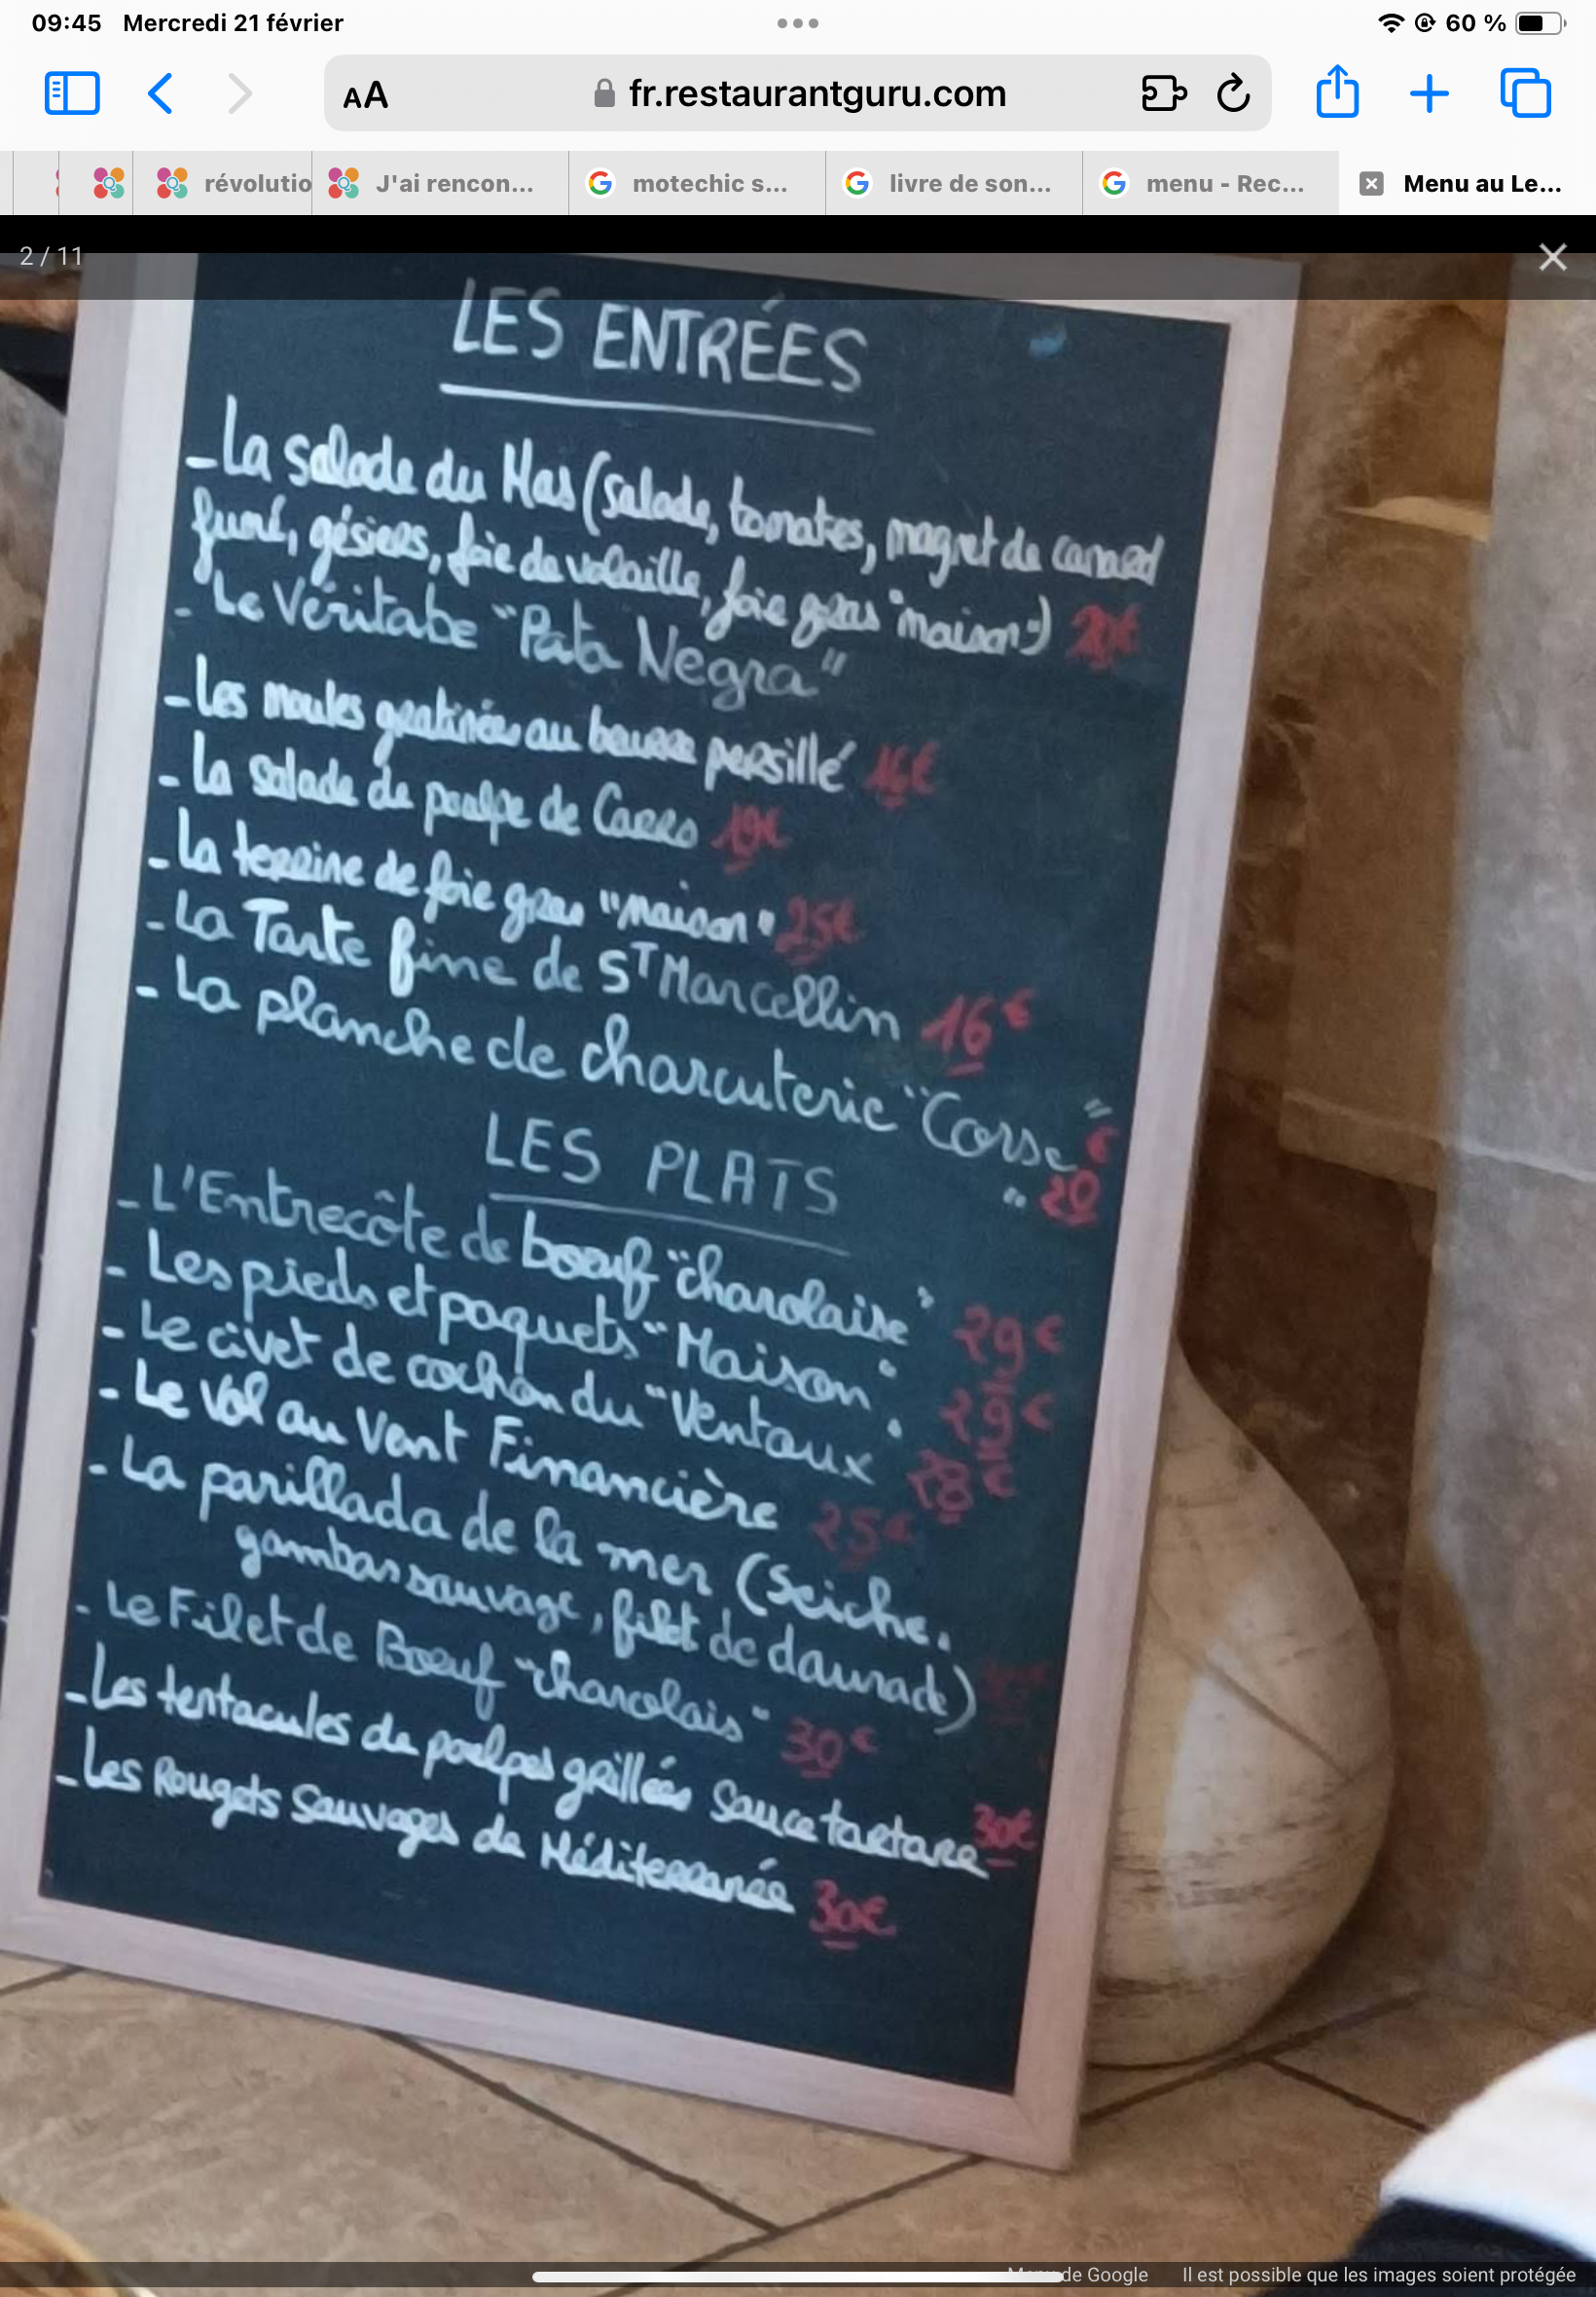 09:45 Mercredi 21 février
60 %
AA
fr.restaurantguru.com
révolutio
J'ai rencon...
motechic s...
livre de son...
menu - Rec...
Menu au Le...
2 / 11
LES ENTRÉES
- La salade du Mas (salade, tomates, magret de canard
fumé, gésiers, foie de volaille, foie gras "maison")
- Le Véritabe "Pata Negra"
- Les moules gratinées au beurre persillé 16€
- La salade de poulpe de Carro 19€
- La terrine de foie gras "maison" 25€
- La Tarte fine de ST Marcellin 16€
- La planche de charcuterie "Corse"
" 20€
LES PLATS
- L'Entrecôte de boeuf "charolaise" 29€
- Les pieds et paquets "Maison" 29€
- Le civet de cochon du "Ventoux" 28€
- Le Vol au Vent Financière 25€
- La parillada de la mer (Seiche,
gambas sauvage, filet de daurade)
- Le Filet de Boeuf "charolais" 30€
- Les tentacules de poulpes grillées sauce tartare 30€
- Les Rougets Sauvages de Méditerranée 30€
de Google
Il est possible que les images soient protégée